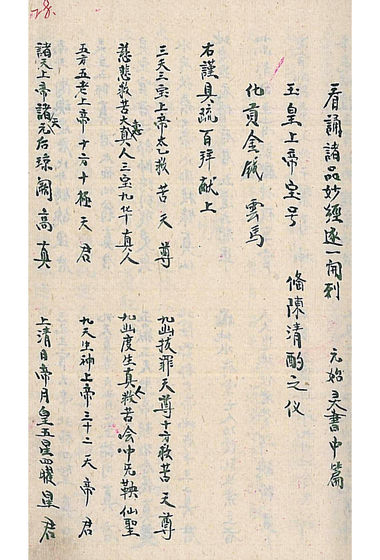 看誦諸品妙經逐一開列 元始灵書中篇
玉皇上帝宝号 修陳清酌之仪
化貢金錢 雲馬
右謹具疏百拜献上
三天三宗上帝太乙救苦天尊 九幽拔罪天尊十方救苦天尊
慈悲救苦大惠真人三宝九华真人 九幽度生真人救苦会中兄鞅仙聖
五方五老上帝十方十極天君 九天生神上帝三十二天帝君
諸天上帝諸天元后琼阙高真 上清日帝月皇五星四曜星君
28.